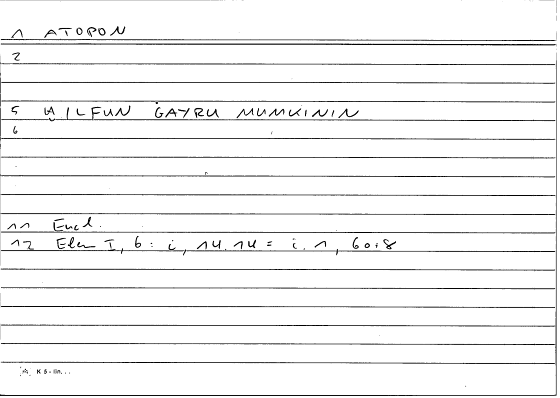 1 ATOPON
2
5 ḪILFUN ĠAYRU MUMKININ
6
11 Eucl.
12 Elem I, 6 : i, 14.14 = i. 1, 60:8
K 5 - lin...